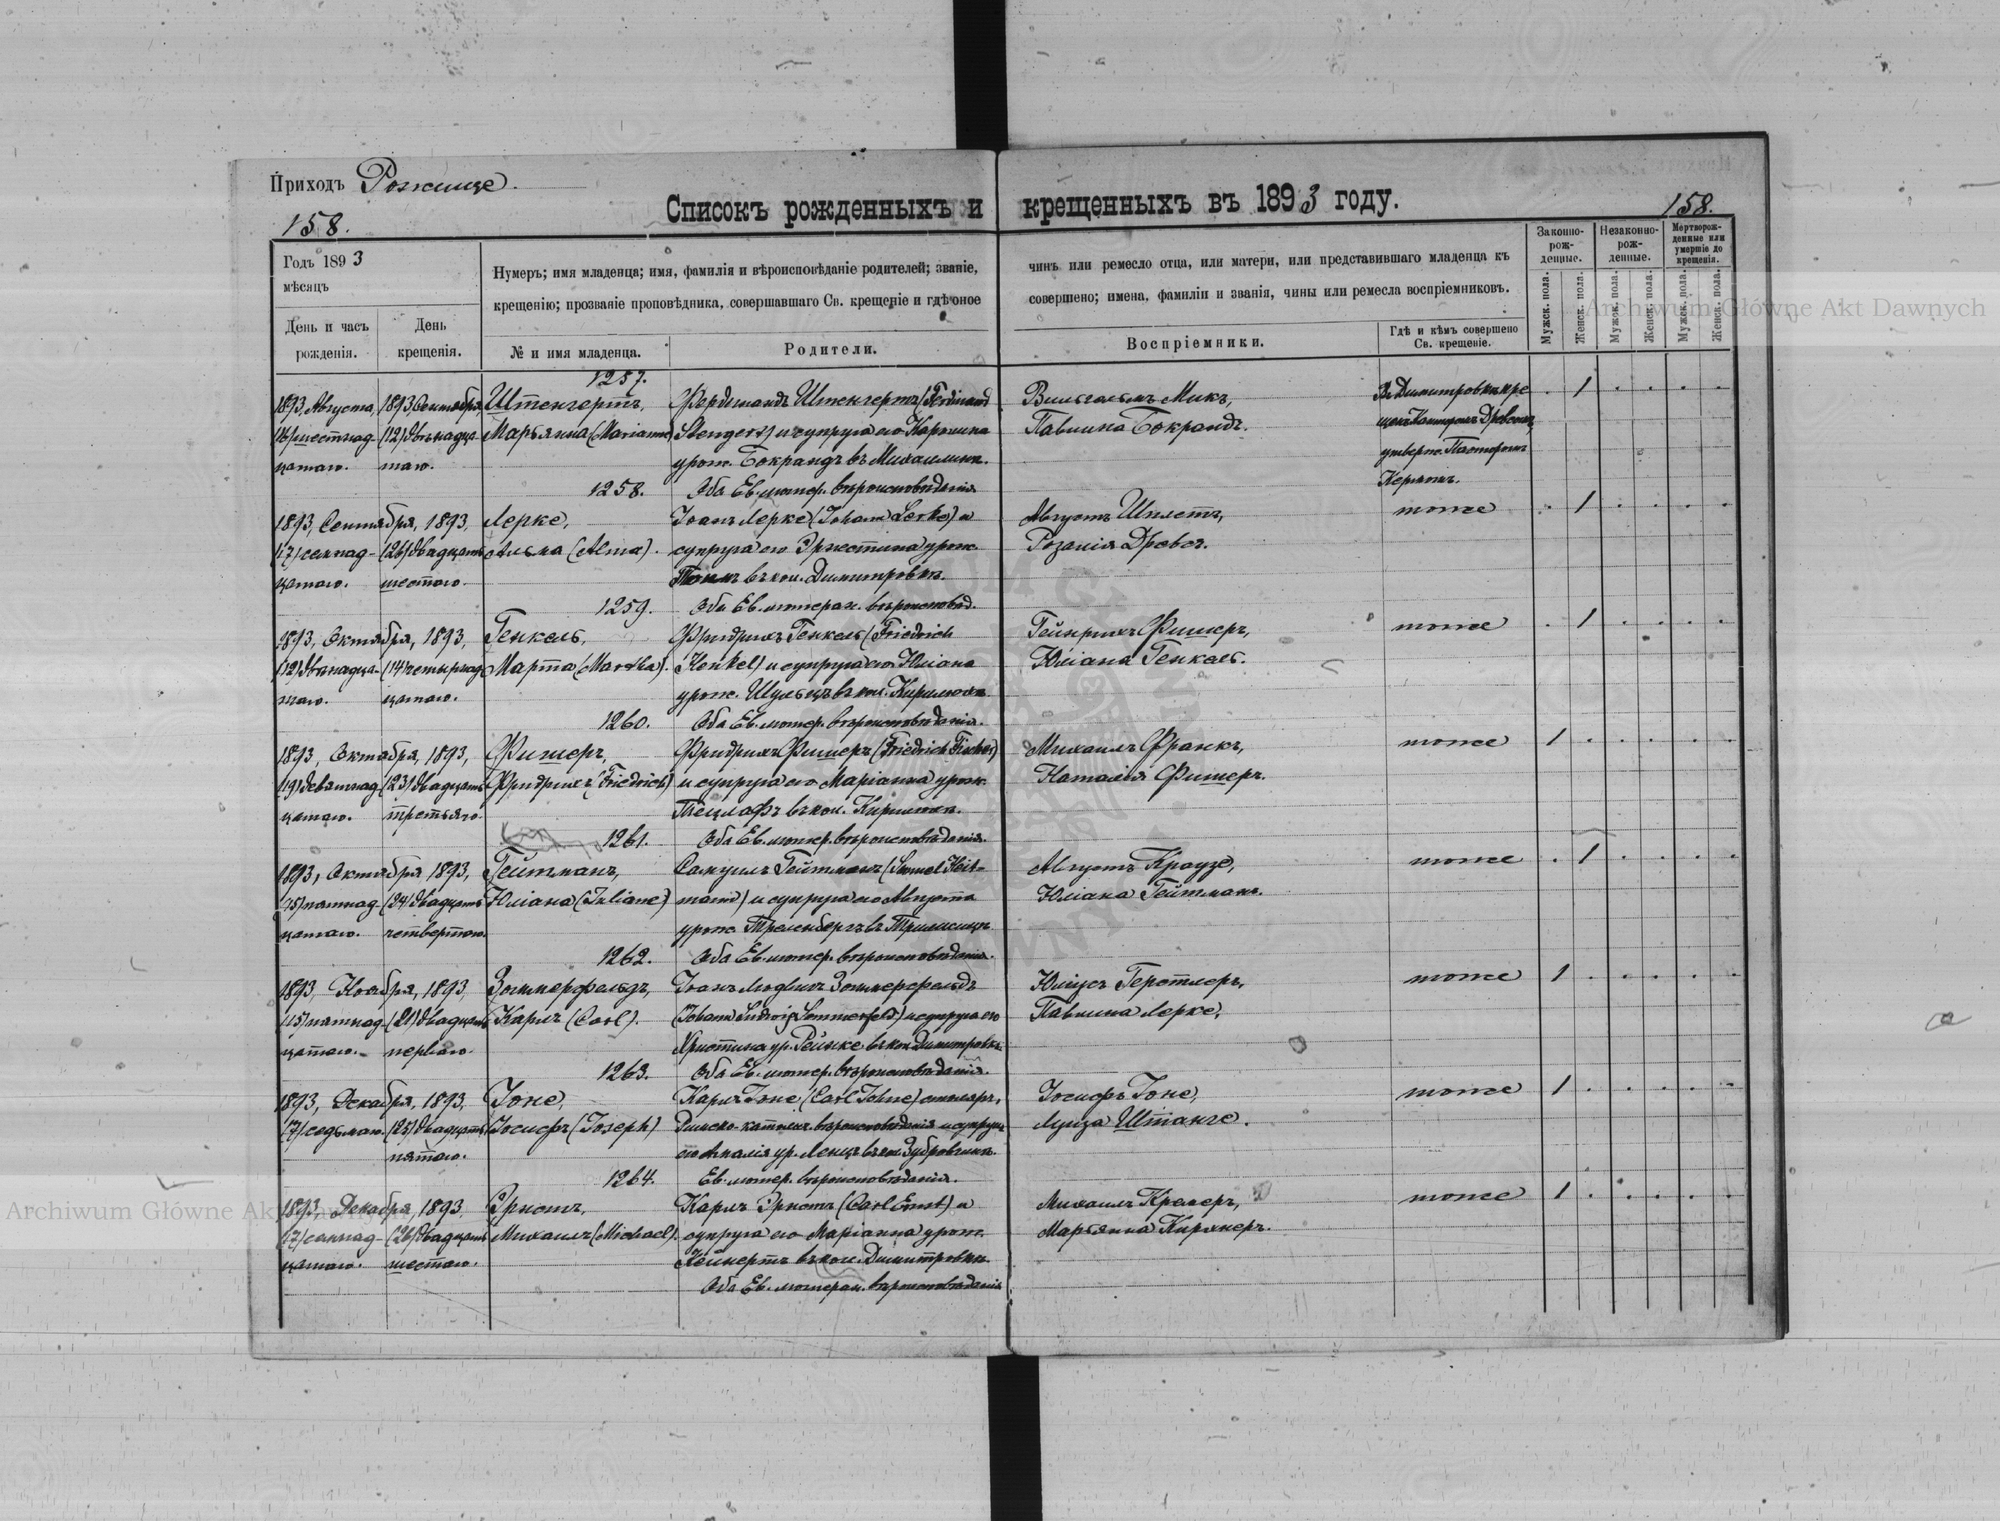 Приходъ Рожище.
158.
Списокъ рожденныхъ и крещенныхъ въ 1893 году.
158.
Годъ 1893
мѣсяцъ
День и часъ
рожденія.
День
крещенія.
Нумеръ; имя младенца; имя, фамилія и вѣроисповѣданіе родителей; званіе,
крещенію; прозваніе проповѣдника, совершавшаго Св. крещеніе и гдѣ оное
№ и имя младенца.
Родители.
чинъ или ремесло отца, или матери, или представившаго младенца къ
совершено; имена, фамиліи и званія, чины или ремесла воспріемниковъ.
Воспріемники.
Гдѣ и кѣмъ совершено
Св. крещеніе.
Законно-
рож-
денные.
Незаконно-
рож-
денные.
Мертворож-
денные или
умершіе до
крещенія.
Мужск. пола.
Женск. пола.
Мужск. пола.
Женск. пола.
Мужск. пола.
Женск. пола.
1257.
1893, Августа, 1893, Сентября, Штенгертъ, Фердинандъ Штенгертъ (Ferdinand Вильгельмъ Микъ, Въ Димитровкѣ кре 1
(16) шестнад- (12) двѣнадца- Марьянна (Marianne) Stengert) и супруга его Каролина Павлина Бокрандъ.
цатаго. таго. урож. Бокрандъ въ Михаилинѣ. утвержд. Пасторомъ
1258. Оба Ев. лютер. вѣроисповѣданія.
1893, Сентября, 1893, Лерке, Іоанъ Лерке (Johann Lerke) и Августъ Шилетъ, тоже 1
(17) семнад- (26) двадцать Альма (Alma). супруга его Эрнестина урож. Розалія Древсъ.
цатаго. шестого. въ кол. Димитровкѣ.
1259. Оба Ев. лютеран. вѣроисповѣд.
1893, Октября, 1893, Генкель, Фридрихъ Генкель (Friedrich Гейнрихъ Фишеръ, тоже 1
(12) двѣнадца- (14) четырнад- Марта (Martha). Henkel) и супруга его Юліана Юліана Генкель.
таго. цатаго. урож. Шульцъ въ кол.
1260. Оба Ев. лютер. вѣроисповѣданія.
1893, Октября, 1893, Фишеръ, Фридрихъ Фишеръ (Friedrich Fischer) Михаилъ Франкъ, тоже 1
(19) девятнад- (23) двадцать Фридрихъ (Friedrich) и супруга его Маріанна урож. Наталія Фишеръ.
цатаго. третьяго. Тецлафъ въ кол.
1261. Оба Ев. лютер. вѣроисповѣданія.
1893, Октября 1893, Гейтманъ, Самуилъ Гейтманъ (Samuel Heit- Августъ Краузе, тоже 1
(15) пятнад- (24) двадцать Юліана (Juliane) mann) и супруга его Августа Юліана Гейтманъ.
цатаго. четвертого. урож.
1262. Оба Ев. лютер. вѣроисповѣданія.
1893, Ноября, 1893, Зоммерфельдъ, Іоанъ Людвигъ Зоммерфельдъ Юліусъ Геротлеръ, тоже 1
(15) пятнад- (21) двадцать Карлъ (Carl). (Johann Ludwig Sommerfeld) и супруга его Павлина Лерке,
цатаго. перваго. Христина ур. Рейнке въ кол. Димитровкѣ.
1263. Оба Ев. лютер. вѣроисповѣданія.
1893, Декабря, 1893, Іоне, Карлъ Іоне (Carl Johne) столяръ, Іосифъ Іоне, тоже 1
(7) седьмаго. (25) двадцать Іосифъ (Joseph) Римско-католич. вѣроисповѣданія и супруга Луиза Штанге.
пятаго. его Амалія ур. Ленцъ въ кол.
1264. Ев. лютер. вѣроисповѣданія.
1893, Декабря, 1893, Эрнстъ, Карлъ Эрнстъ (Carl Ernst) и Михаилъ Кремеръ, тоже 1
(17) семнад- (26) двадцать Михаилъ (Michael). супруга его Маріанна урож. Марьянна Кирхнеръ.
цатаго. шестаго. въ кол. Димитровкѣ.
Оба Ев. лютеран. вѣроисповѣданія
Archiwum Główne Akt Dawnych
Archiwum Główne Akt Dawnych